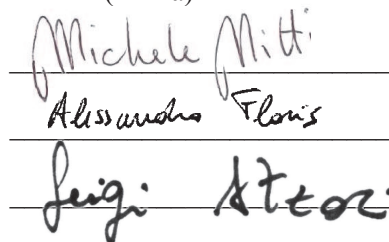 Michele Mitti
Alessandro Floris
Luigi Atzori